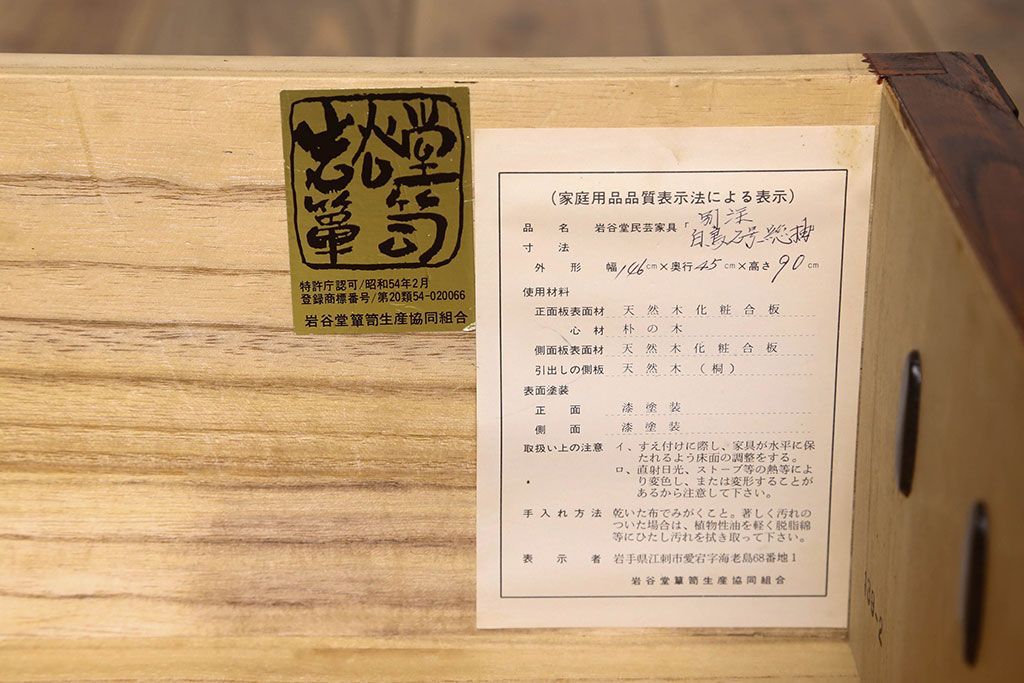 岩谷堂簞笥
特許庁認可/昭和54年2月
登録商標番号/第20類54-020066
岩谷堂簞笥生産協同組合
(家庭用品品質表示法による表示)
品名 岩谷堂民芸家具「
寸法
外形 幅146cm×奥行45cm×高さ90cm
使用材料
正面板表面材 天然木化粧合板
心材 朴の木
側面板表面材 天然木化粧合板
引出しの側板 天然木(桐)
表面塗装
正面 漆塗装
側面 漆塗装
取扱い上の注意 イ、すえ付けに際し、家具が水平に保
たれるよう床面の調整をする。
ロ、直射日光、ストーブ等の熱等によ
り変色し、または変形することが
あるから注意して下さい。
手入れ方法 乾いた布でみがくこと。著しく汚れの
ついた場合は、植物性油を軽く脱脂綿
等にひたし汚れを拭き取って下さい。
表示者 岩手県江刺市愛宕字海老島68番地1
岩谷堂簞笥生産協同組合